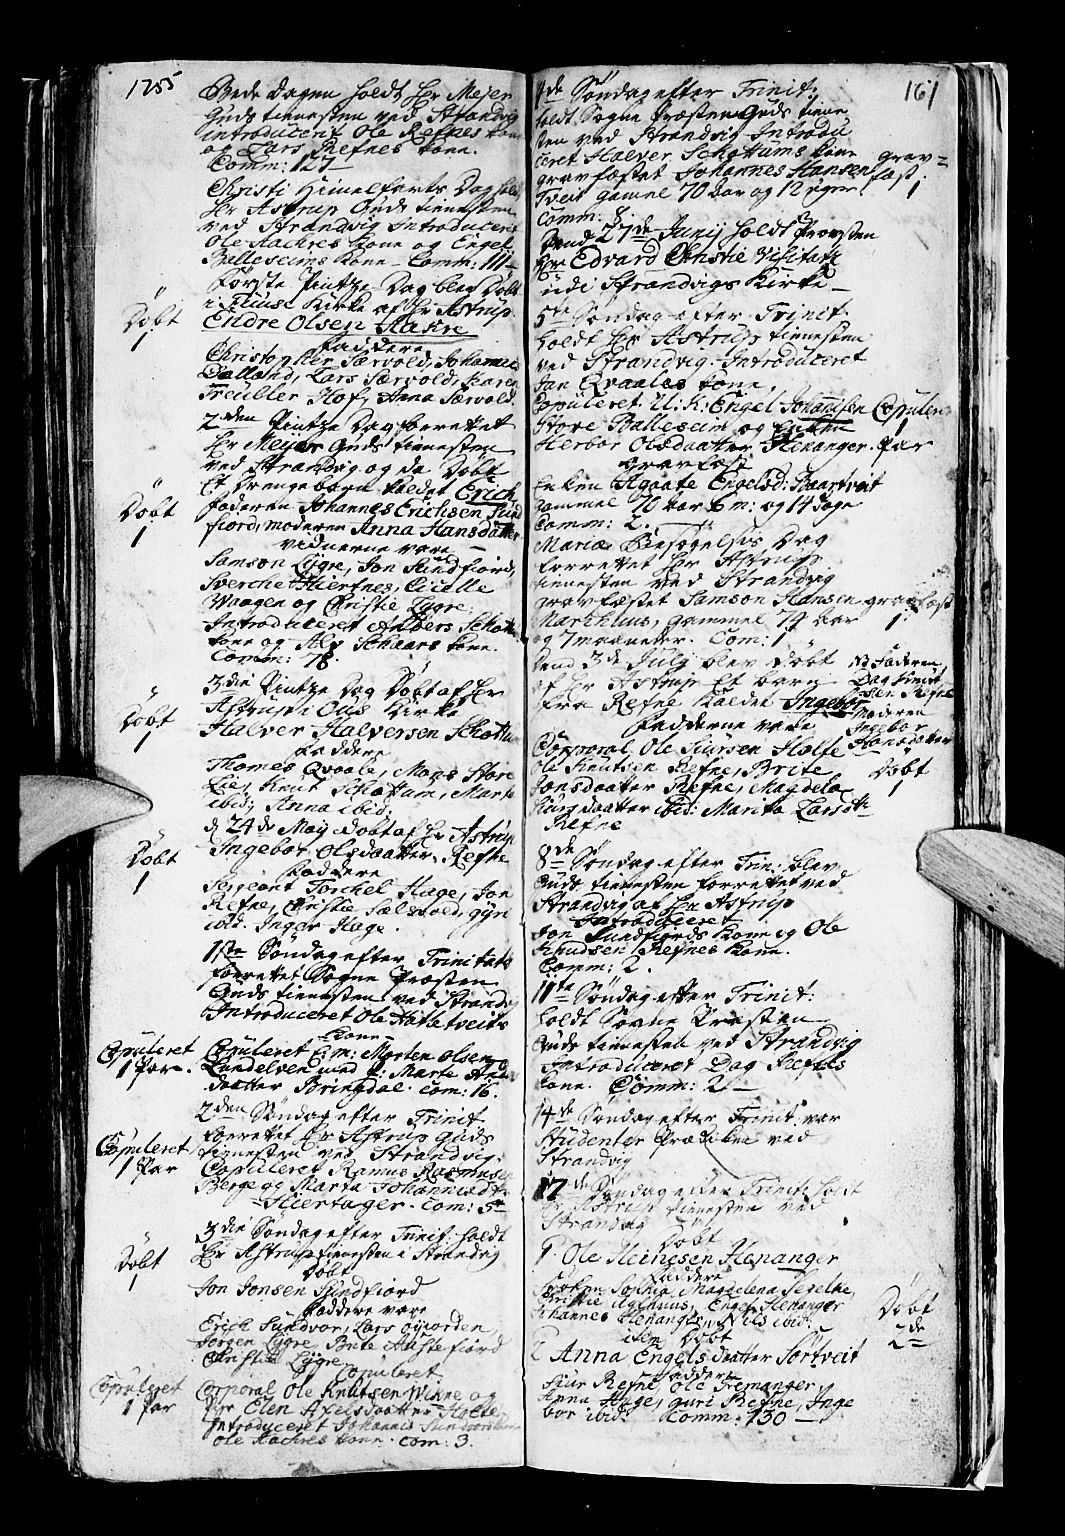 1755
Bede Dagen holdt Hr Mejer
Guds tienesten ved Strandvig
introducent Ole Refnes kone
og Lars Refnes kone.
Comm: 127
Christi Himelfarts Dag holdt
Hr Astrup Guds tienesten
ved Strandvig Introduceret
Ole Aachres kone og Engel
Balleseims kone – Comm: 111 –
Første Pintze Dag blev Døbt
i Kirke af Hr Astrup
Døbt
1
Endre Olsen Aakre
faddere
Christopher Særvold, Johannes
Dallland, Lars Særvold, Karen
Treubler Hof, Anna Særvold.
2den Pintze Dag forrettet
Hr Mejer Guds tienesten
ved Strandvig og da Døbt
Døbt
1
Et Drengebarn kaldet Erich,
faderen Johannes Erichsen Sund
fiord, moderen Anna Hansdatter
vidnerne vare
Samson Lygre, Jon Sundfiord,
Sverche Hiertnes, Cicelle
Waagen og Christie Lygre.
Introduceret Anbers Schottum
kone og Schaars kone.
Comm: 78.
3die Pintze Dag Døbt af Hr
Astrup i Ous Kirke
Døbt
1
Halver Halversen Schottum
faddere
Thomes Qvaale, Mons Store
Lie, Knut Schottum, Marta
ibid: Anna ibid.
d 24de Maij Døbt af Hr Astrup
Døbt
1
Ingebor Olsdaatter Refne
faddere
Sergeant Torchel Hage, Jon
Refne, Christie Sælevold, Gyri
ibid. Inger Hage.
1ste Søndag efter Trinitatis
forrettet Sogne Præsten
Guds tienesten ved Strandvig
Introduceret Ole Hatletveits
kone
Copuleret
1 Par.
Copuleret E: m: Morten Olsen
Lundelven med P: Marte
daatter Bringdal. com: 16.
2den Søndag efter Trinit
forrettet Hr Astrup Guds
tienesten ved Strandvig.
Copuleret
1 Par
Copuleret Ramus Rasmusen
Berge og Marta Johannisdtr
Hiertager. com: 5
3die Søndag efter Trinit: holdt
Hr Astrup tienesten i Strandvig
Døbt
1
Døbt
Jon Jonsen Sundfiord
faddere vare
Erich Sundvor, Lars Gyiorden,
Jørgen Lygre, Brite Hustefiord
Christie Lygre
Copuleret
1 Par
Copuleret
Corporal Ole Knutsen Wichne og
Elen Axelsdaatter Holte.
Introduceret Johannis Sundvors kone
Ole Aachres kone. com: 3.
161
4de Søndag efter Trinit:
holdt Sogne Præsten Guds tiene
sten ved Strandvig Introdu
ceret Halver Schottums kone
gravfæstet Johannes Hansen
Tveit gamel 70 aar og 12 uger.
Comm: 8.
grav=
fæst.
1
Dend 27de Junij holdt Provsten
Hr Edvard Christie Visitatz
udi Strandvigs Kirke –
5te Søndag efter Trinit.
holdt Hr Astrup tienesten
ved Strandvig. Introduceret
Jan Qvaales kone.
Copuleret U: K: Engel Johannisen
Store Balleseim og Enken
Herbor Olsdaatter Henanger.
Copuleret
1
Par
gravfæst
Enken Agaate Engelsd: Skaartveit
gammel 70 aar 6 m: og 14 Dage
Comm: 2.
Mariæ Besøgelses Dag
forrettet Hr Astrup
tienesten ved Strandvig
gravfæstet Samson Hansen
Markhus, gammel 74 aar
og 7 maaneder. Com: 1
gravfæst
1.
Dend 3de Julij blev Døbt
af Hr Astrup Et barn
fra Refne kaldet Ingebor
NB Faderen
Dag
Refne
Moderen
Ingebor
Hansdatter
Fadderne vare
Corporal Ole Siursen Holte
Ole Knutsen Refne, Brite
Jonsdaatter Refne, Magdela
Siursdaatter ibid: Marita Larsdtr
Refne
Døbt
1
8de Søndag efter Trin: blev
Guds tienesten forrettet ved
Strandvig af Hr Astrup
Introduceret
Jon Sundfiords kone og Ole
Knudsen Refnes kone.
Comm: 2.
11te Søndag efter Trinit:
holdt Sogne Præsten
Guds tienesten ved Strandvig
Introduceret Dag Refnes
kone. Comm: 2 –
14de Søndag efter Trinit: var
Studenter Prædiken ved
Strandvig
17de Søndag efter Trinit: holdt
Hr Astrup tienesten ved
Strandvig
Døbt
1. Ole Heinesen Henanger
Faddere
Sophia Magdelena Segelke,
Christie Ugehuus, Engel Henanger
Johannes Henanger, Nils ibid:
Døbt
2de
item Døbt
2 Anna Engelsdaatter Sørtveit
faddere
Siur Refne, Ole Tremanger,
Anna Hage, guri Refne, Inge
bor ibid: Comm: 130 –